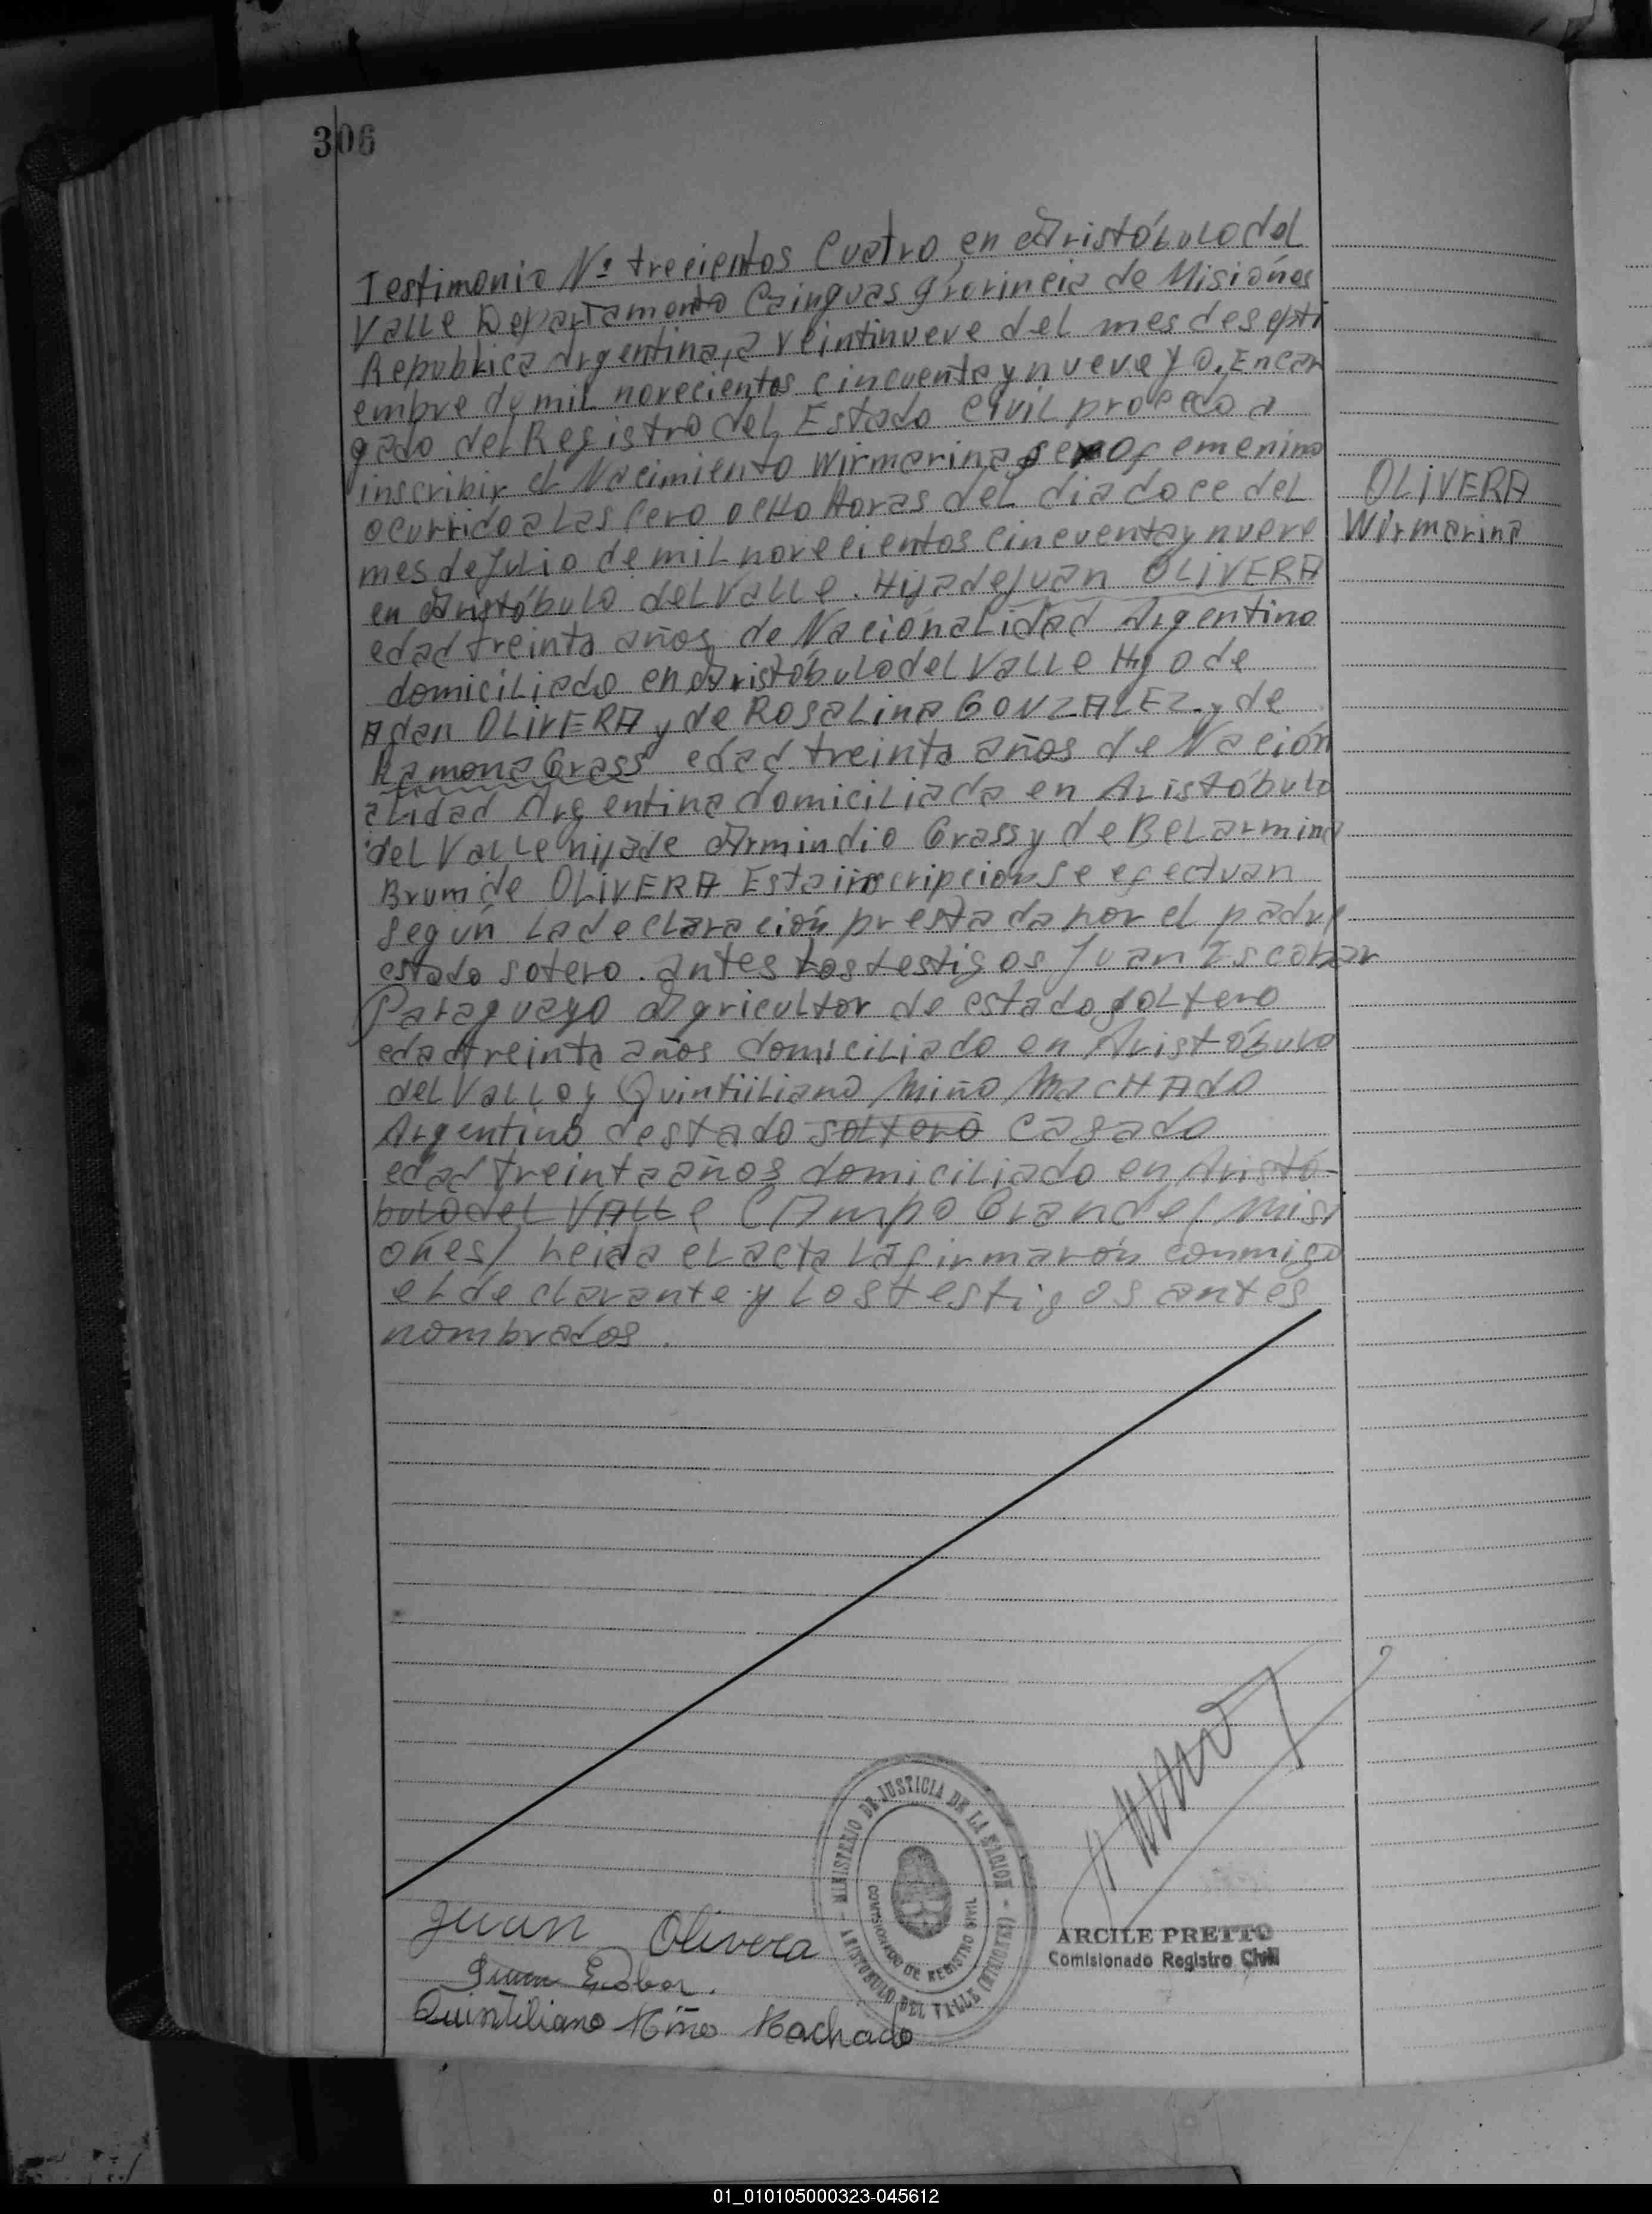 306
Testimonio Nº trecientos Cuatro en Aristóbulo del
Valle Departamento Cainguas provincia de Misiónes
Republica Argentina, a veintinueve del mes de septi
embre de mil novecientos cincuenta y nueve yo, Encar
gado del Registro del Estado Civil procedo a
inscribir el Nacimiento Wirmarina sexo femenino
ocurrido a las cero ocho Horas del dia doce del
mes de Julio de mil novecientos cincuenta y nueve
en Aristóbulo del Valle. Hija de Juan OLIVERA
edad treinta años de Naciónalidad Argentino
domiciliado en Aristóbulo del Valle Hijo de
Adan OLIVERA y de ROSALINA GONZALEZ y de
Ramona Grass edad treinta años de Nación
alidad Argentina domiciliada en Aristóbulo
del Valle hija de Armindio Grass y de Belarmina
Brum de OLIVERA Esta inscripcion se efectuan
según la declaración prestada por el padre
estado sotero. antes los testigos Juan Escobar
Paraguayo Agricultor de estado soltero
edad treinta años domiciliado en Aristóbulo
del Valle y Quintiiliano Miño MACHADO
Argentino destado soltero casado
edad treinta años domiciliado en Aristó-
bulo del VAlle CAmpo Grande (Misi
ones) Leida el acta la firmarón conmigo
el declarante y los testigos antes
nombrados.
OLIVERA
Wirmarina
Juan Olivera
Juan Escobar.
Quintiliano Miño Machado
MINISTERIO DE JUSTICIA DE LA NACION - ARISTOBULO DEL VALLE (MISIONES) -
COMISIONADO DE REGISTRO CIVIL
ARCILE PRETTO
Comisionado Registro Civil
01_010105000323-045612